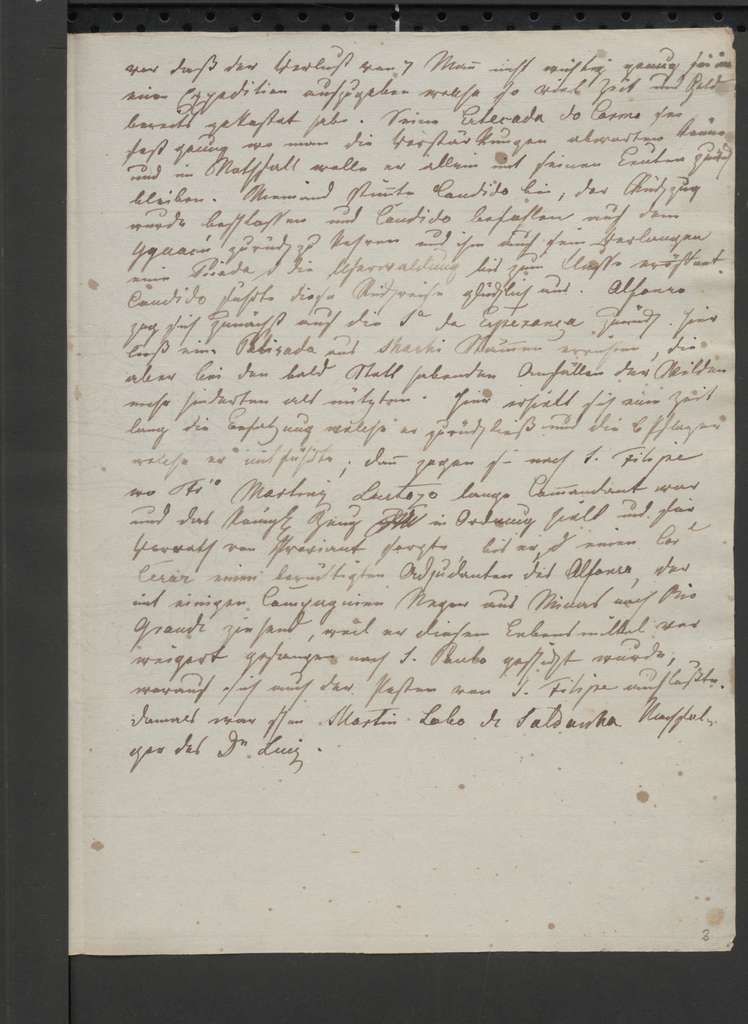 war daß der Verlust von 7 Mann nicht wichtig genug sei um
eine Expedition aufzugeben welche so viel Zeit und Geld
bereits gekostet habe. Seine Estacada do Carmo sei
fest genug wo man die Verstärkungen abwarten könne
und im Nothfall wolle er allein mit seinen Leuten zurück
bleiben. Niemand stimte Candido bei, der Rückzug
wurde beschlossen und Candido befohlen nach dem
Yguacú zurück zu kehren und ihm auch sein Verlangen
eine Picada d die Uferwaldung bis zum Flusse eröffnet
Candido führte diese Rückreise glücklich aus. Alfonso
zog sich zunächst auf die Sa da Esperança zurück. hier
ließ eine Palisada aus Stämmen errichten, die
aber bei den bald Statt habenden Anfällen der Wilden
mehr hinderten als nützten. Hier erhielt sich eine Zeit
lang die Besatzung welche er zurückließ und die
welche er mitführte; dann zogen sie nach S. Filipe
wo Fro Martinz Lustozo lange Commandant war
und das Königl Zeug in Ordnung hielt und für
Vorrath von Proviant sorgte bis er, d einen Cor
Cezar einen berüchtigten Adjudanten des Alfonso, der
mit einigen Compagnien Neger aus Minas nach Rio
Grande ziehend, weil er diesem Lebensmittel ver
weigert gefangen nach S. Paulo geschickt wurde,
worauf sich auch der Posten von S. Filipe auflößte.
damals war schon Martin Lobo de Saldanha Nachfol-
ger des Dn Luiz.
3